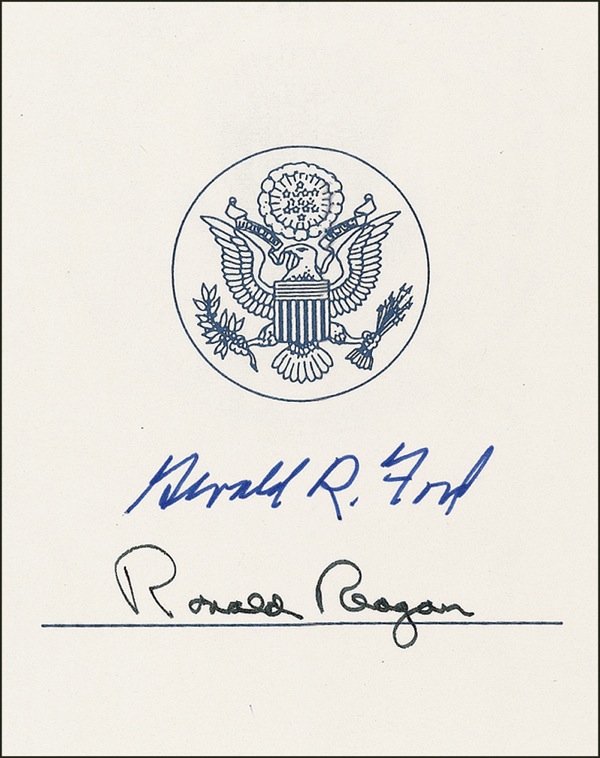 Gerald R. Ford
Ronald Reagan